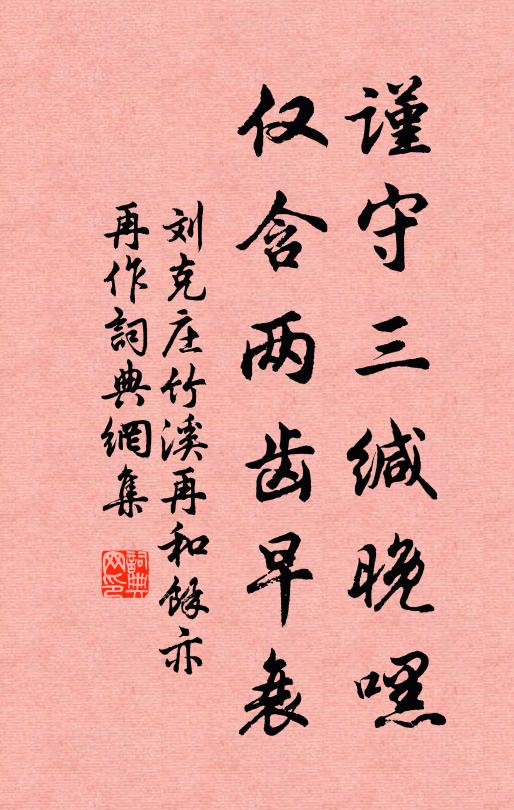 谨守三缄晚嘿
仅含两齿早衰
刘克庄竹溪再和馀亦
再作詞典網集
詞典网印